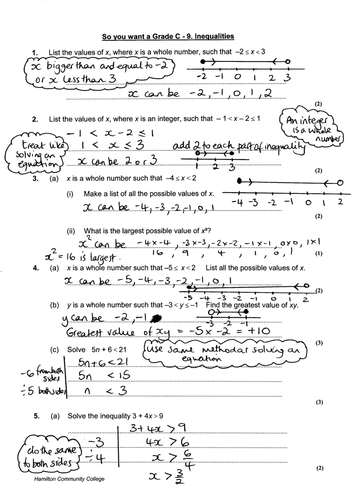 So you want a Grade C - 9. Inequalities
1. List the values of x, where x is a whole number, such that −2 ≤ x < 3
x bigger than and equal to -2
or x less than 3
-2 -1 0 1 2 3
x can be -2, -1, 0, 1, 2
(2)
2. List the values of x, where x is an integer, such that − 1 < x − 2 ≤ 1
An integer
is a whole
number
-1 < x - 2 ≤ 1
treat like
solving an
equation
1 < x ≤ 3 add 2 to each part of inequality
1 2 3
x can be 2 or 3
(2)
3. (a) x is a whole number such that −4 ≤ x < 2
(i) Make a list of all the possible values of x.
-4 -3 -2 -1 0 1 2
x can be -4, -3, -2, -1, 0, 1
(2)
(ii) What is the largest possible value of x²?
x² can be -4x-4, -3x-3, -2x-2, -1x-1, 0x0, 1x1
x² = 16 is largest. 16, 9, 4, 1, 0, 1
(1)
4. (a) x is a whole number such that −5 ≤ x < 2 List all the possible values of x.
x can be -5, -4, -3, -2, -1, 0, 1
-5 -4 -3 -2 -1 0 1 2
(2)
(b) y is a whole number such that −3 < y ≤ −1 Find the greatest value of xy.
y can be -2, -1
-3 -2 -1
Greatest value of xy = -5 x -2 = +10
(3)
(c) Solve 5n + 6 < 21
Use same method as solving an
equation
-6 from both
sides
5n + 6 < 21
5n < 15
÷5 both sides
n < 3
(3)
5. (a) Solve the inequality 3 + 4x > 9
3 + 4x > 9
do the same
to both sides
-3 4x > 6
÷4 x > 6/4
x > 3/2
Hamilton Community College